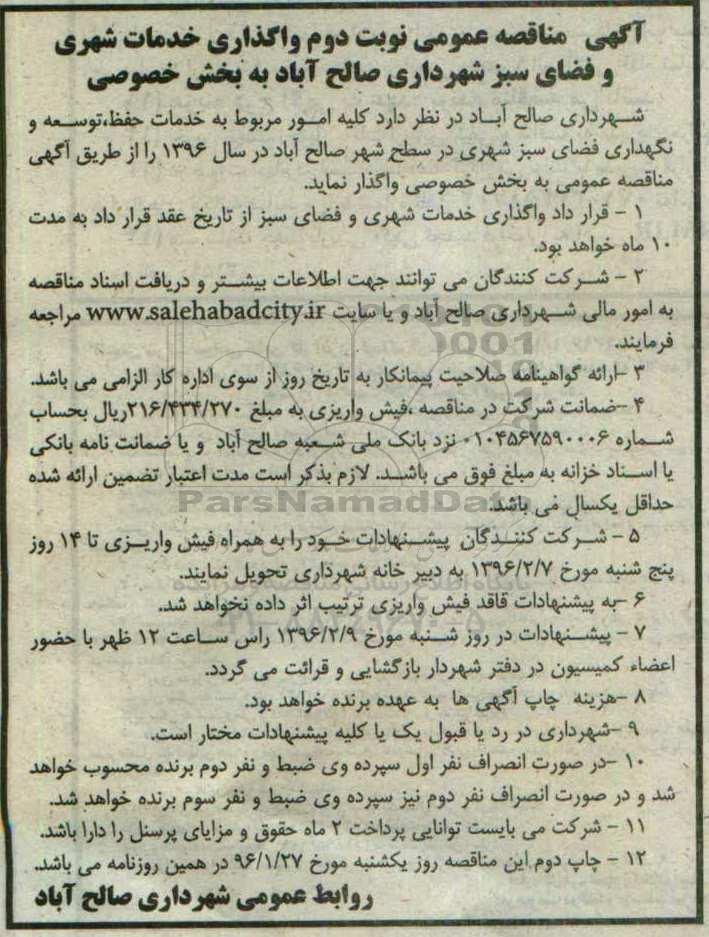 آگهی مناقصه عمومی نوبت دوم واگذاری خدمات شهری
و فضای سبز شهرداری صالح آباد به بخش خصوصی
شهرداری صالح آباد در نظر دارد کلیه امور مربوط به خدمات حفظ،توسعه و
نگهداری فضای سبز شهری در سطح شهر صالح آباد در سال ۱۳۹۶ را از طریق آگهی
مناقصه عمومی به بخش خصوصی واگذار نماید.
۱ - قرار داد واگذاری خدمات شهری و فضای سبز از تاریخ عقد قرار داد به مدت
۱۰ ماه خواهد بود.
۲ - شرکت کنندگان می توانند جهت اطلاعات بیشتر و دریافت اسناد مناقصه
به امور مالی شهرداری صالح آباد و یا سایت www.salehabadcity.ir مراجعه
فرمایند.
۳ -ارائه گواهینامه صلاحیت پیمانکار به تاریخ روز از سوی اداره کار الزامی می باشد.
۴ -ضمانت شرکت در مناقصه ،فیش واریزی به مبلغ ۲۱۶/۴۳۴/۲۷۰ریال بحساب
شماره ۰۱۰۴۵۶۷۵۹۰۰۰۶ نزد بانک ملی شعبه صالح آباد و یا ضمانت نامه بانکی
یا اسناد خزانه به مبلغ فوق می باشد. لازم بذکر است مدت اعتبار تضمین ارائه شده
حداقل یکسال می باشد.
ParsNamadData
۵ - شرکت کنندگان پیشنهادات خود را به همراه فیش واریزی تا ۱۴ روز
پنج شنبه مورخ ۱۳۹۶/۲/۷ به دبیر خانه شهرداری تحویل نمایند.
۶ -به پیشنهادات فاقد فیش واریزی ترتیب اثر داده نخواهد شد.
۷ - پیشنهادات در روز شنبه مورخ ۱۳۹۶/۲/۹ راس ساعت ۱۲ ظهر با حضور
اعضاء کمیسیون در دفتر شهردار بازگشایی و قرائت می گردد.
۸ -هزینه چاپ آگهی ها به عهده برنده خواهد بود.
۹ -شهرداری در رد یا قبول یک یا کلیه پیشنهادات مختار است.
۱۰ -در صورت انصراف نفر اول سپرده وی ضبط و نفر دوم برنده محسوب خواهد
شد و در صورت انصراف نفر دوم نیز سپرده وی ضبط و نفر سوم برنده خواهد شد.
۱۱ - شرکت می بایست توانایی پرداخت ۲ ماه حقوق و مزایای پرسنل را دارا باشد.
۱۲ - چاپ دوم این مناقصه روز یکشنبه مورخ ۹۶/۱/۲۷ در همین روزنامه می باشد.
روابط عمومی شهرداری صالح آباد